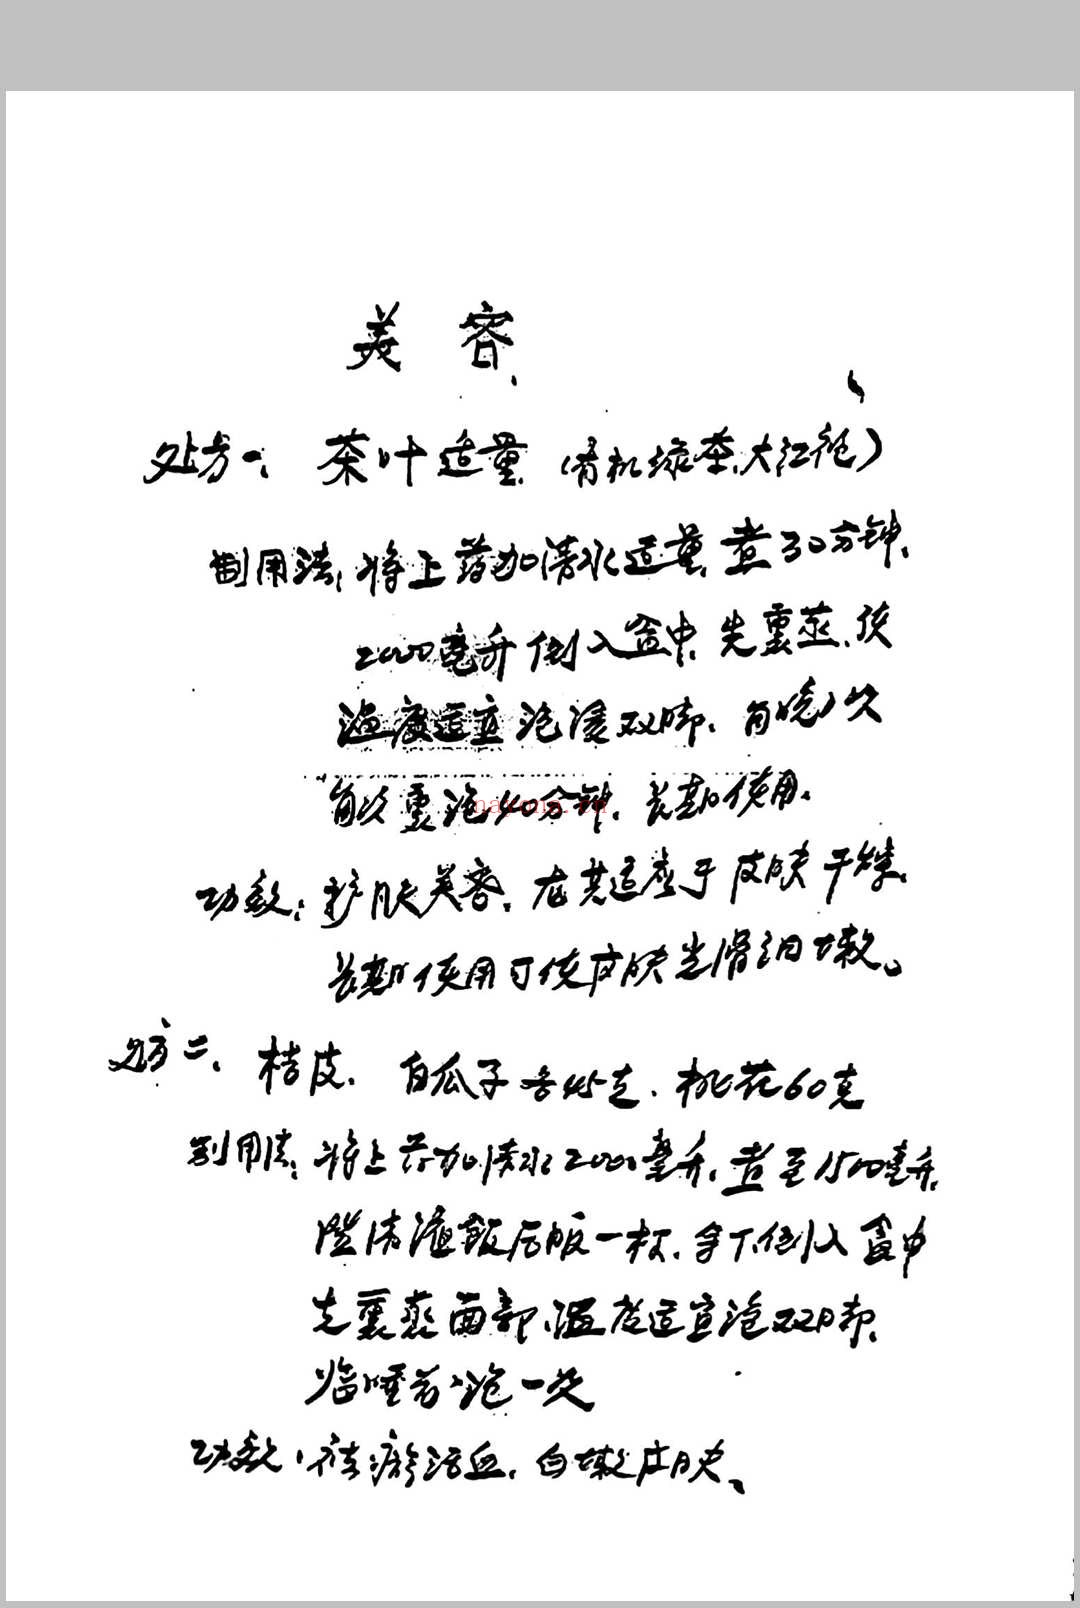 美容
处方一、茶叶适量(有机绿茶、大红袍)
制用法:将上药加清水适量,煮30分钟,
2000毫升倒入盆中,先熏蒸,后
温度适宜泡浸双脚,每晚1次
每次熏泡40分钟,长期使用。
功效:护肤美容,尤其适应于皮肤干燥,
长期使用可使皮肤光滑细嫩。
处方二、桔皮、白瓜子各45克、桃花60克
制用法:将上药加清水2000毫升,煮至1500毫升,
澄清渣饭后服一杯,余下倒入盆中
先熏蒸面部,温度适宜泡双脚,
临睡前泡一次
功效:祛瘀活血,白嫩皮肤、